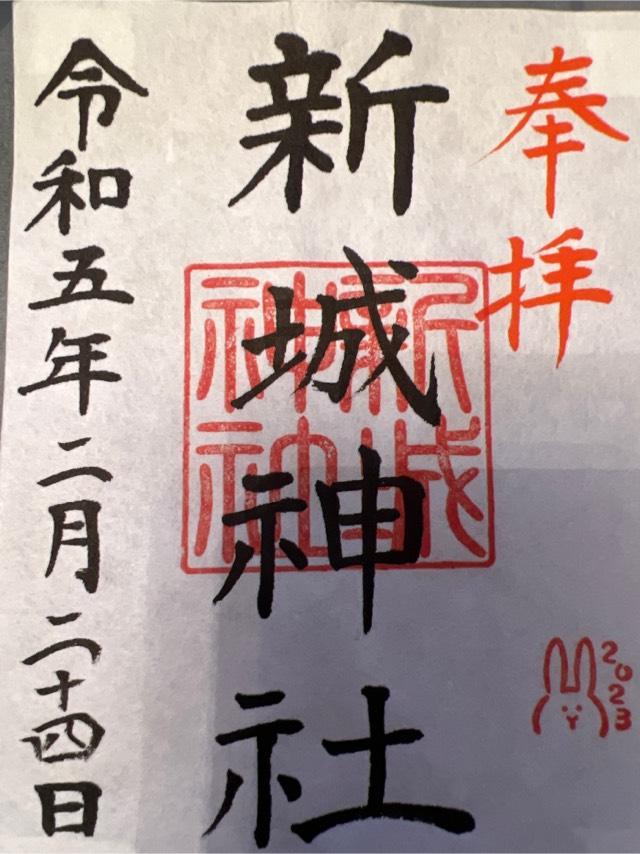 奉拝
新城神社
新城
神社
令和五年二月二十四日
2023